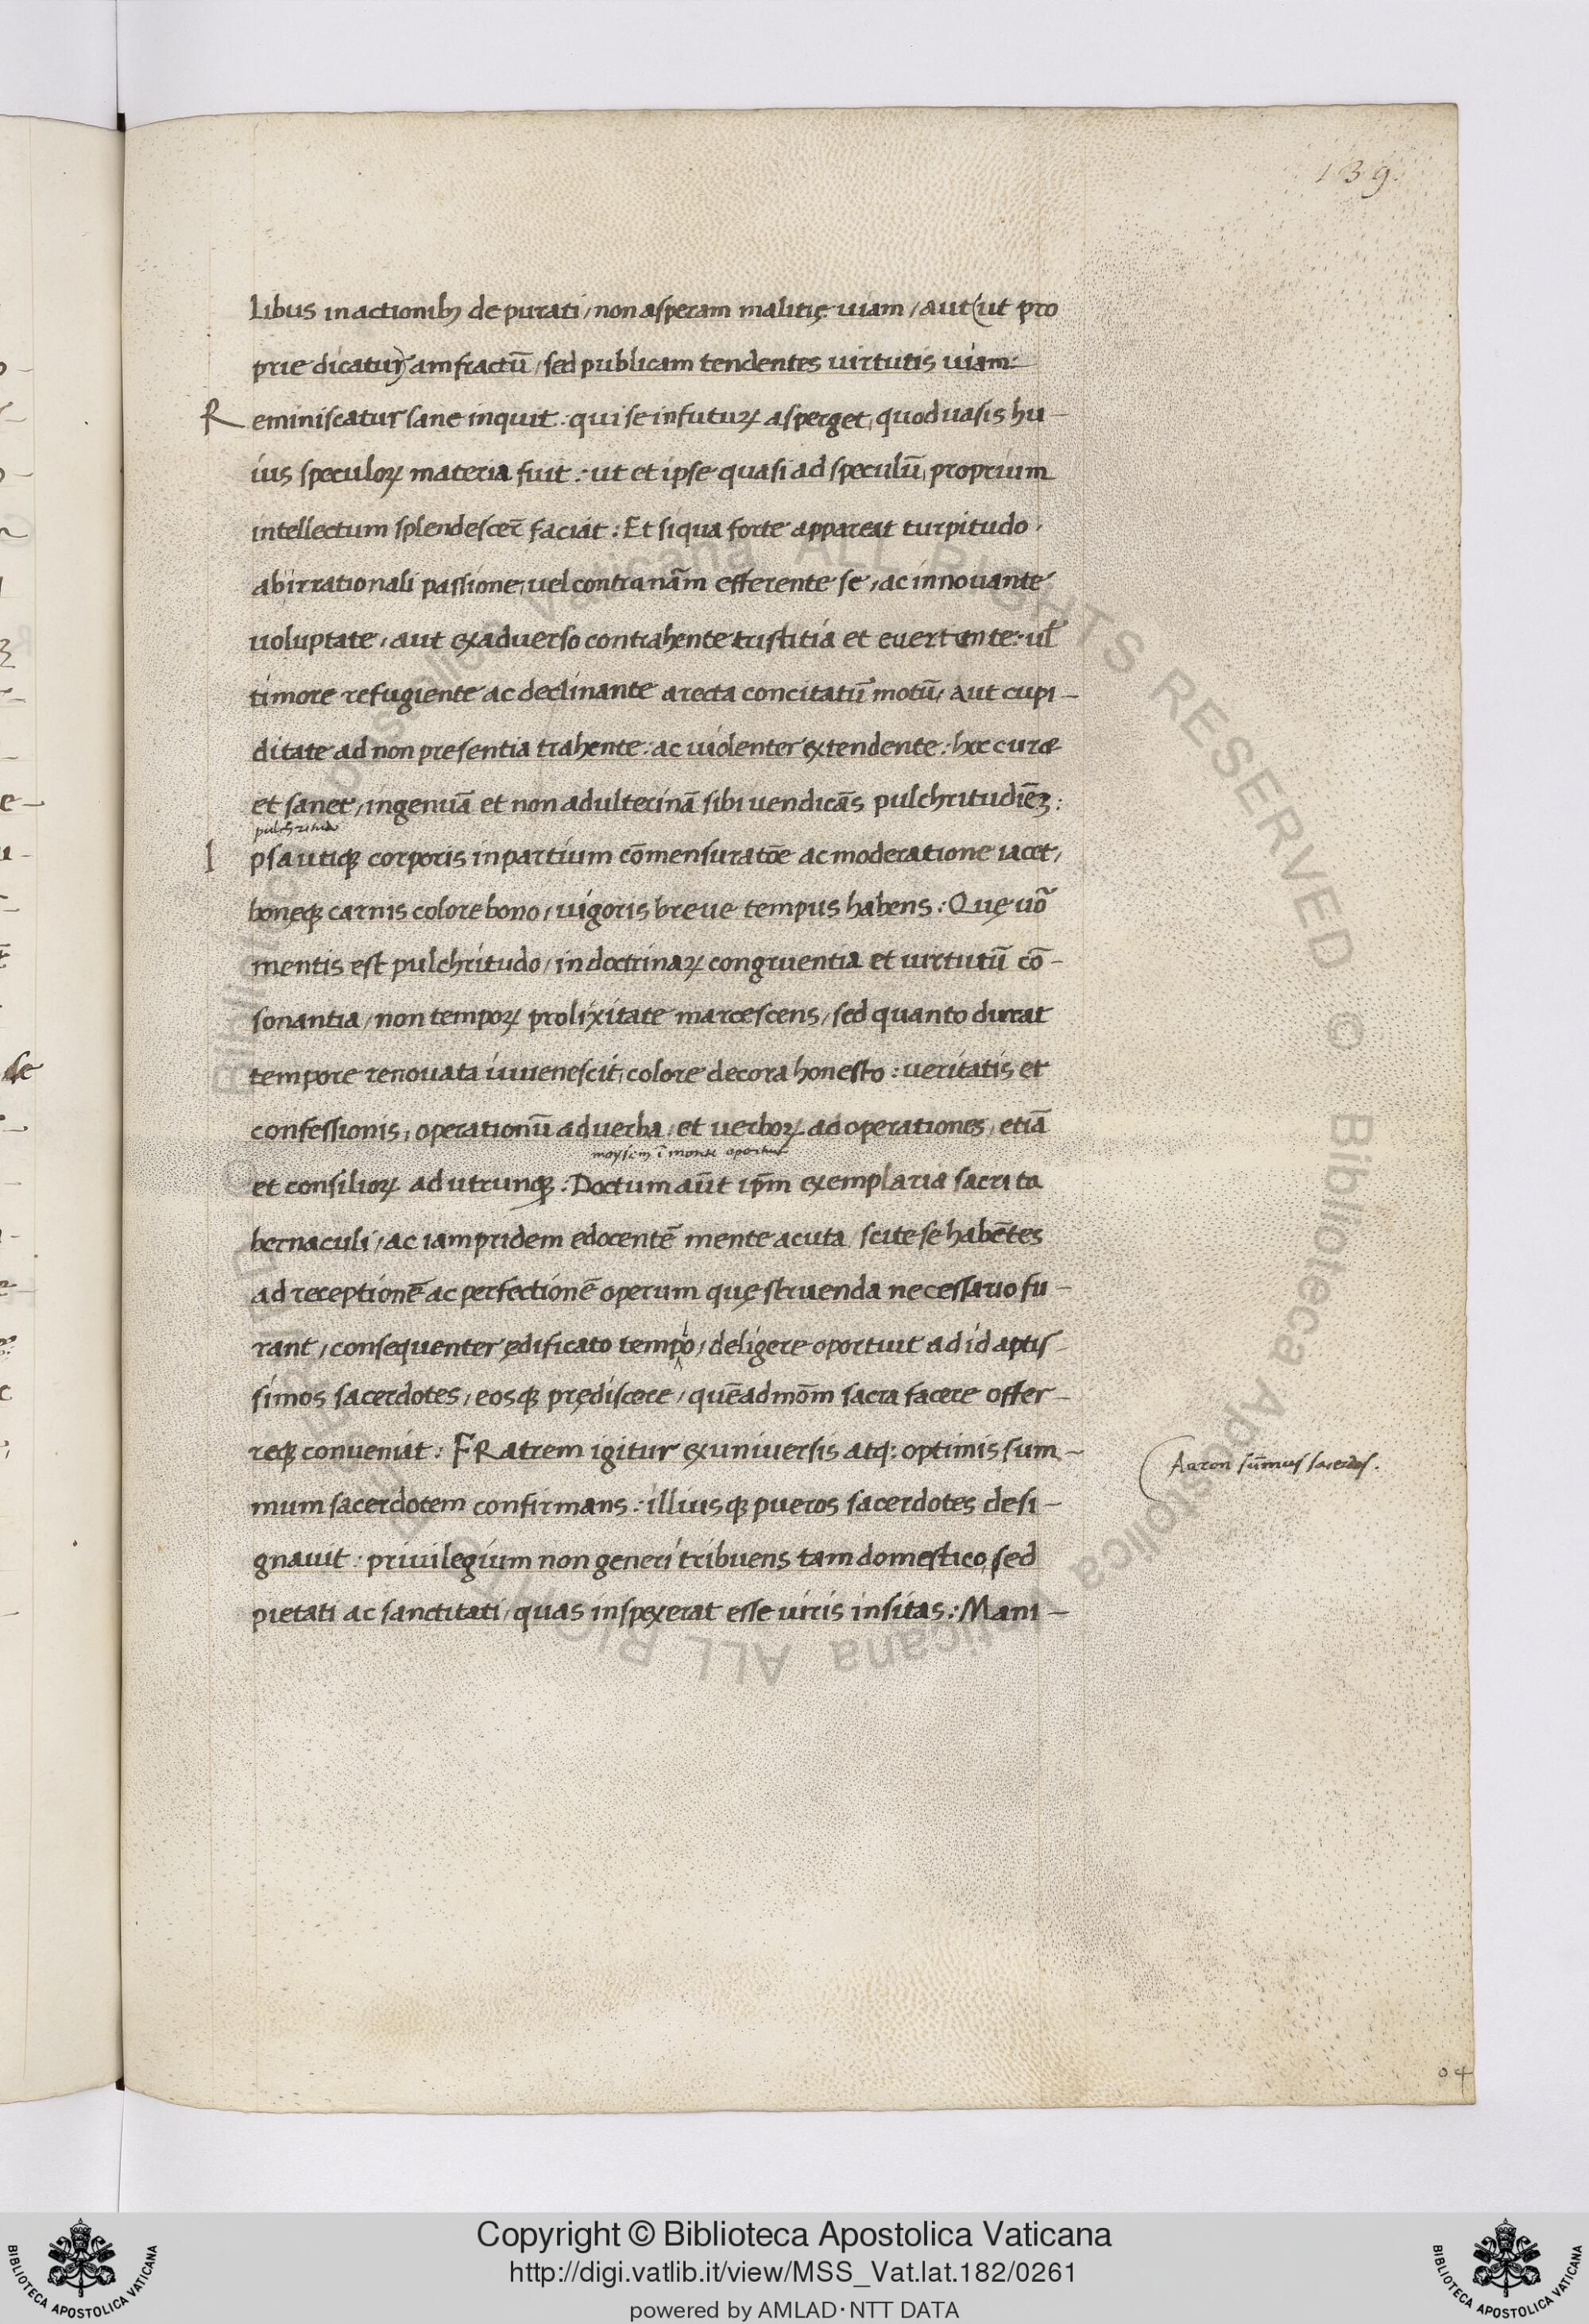 139.
libus in actionibꝫ depurati / non asperam malitię uiam / aut (ut pro
prie dicatur) amfractū / sed publicam tendentes uirtutis uiam:
Reminiscatur sane inquit : qui se in futurꝝ asperget, quod uasis hu-
ius speculoꝝ materia fuit : ut et ipse quasi ad speculū, proprium
intellectum splendescer̄ faciat : Et siqua forte appareat turpitudo
ab irrationali passione, uel contra nām efferente se, ac innouante
uoluptate, aut ex aduerso contrahente tristitia et euertente : ul̄
timore refugiente ac declinante a recta concitatū motū, aut cupi-
ditate ad non presentia trahente : ac uiolenter extendente : hæc curæ
et sanet, ingenuā et non adulterinā sibi uendicās pulchritudiēꝫ :
pulchritudo
Ipsa utiqꝫ corporis in partium cōmensuratōe ac moderatione iacet,
boneqꝫ carnis colore bono, uigoris breue tempus habens : Quę uō
mentis est pulchritudo, in doctrinaꝝ congruentia et uirtutū cō-
sonantia, non tempoꝝ prolixitate marcescens, sed quanto durat
tempore renouata iuuenescit, colore decora honesto : ueritatis et
confessionis, operationū ad uerba, et uerboꝝ ad operationes, etiā
moysem ī monte oportuit
et consilioꝝ ad utrunqꝫ : Doctum aūt ip̄m exemplaria sacri ta
bernaculi, ac iampridem edocentē mente acuta scite se habētes
ad receptionē ac perfectionē operum quę struenda necessario fu-
rant, consequenter ędificato templo, deligere oportuit ad id aptis-
simos sacerdotes, eosqꝫ prędiscere, quēadmōm sacra facere offer-
reqꝫ conueniat : FRatrem igitur ex uniuersis atqꝫ optimis sum-
Aaron sūmus sacerdos.
mum sacerdotem confirmans : illiusqꝫ pueros sacerdotes desi-
gnauit : priuilegium non generi tribuens tam domestico, sed
pietati ac sanctitati, quas inspexerat esse uiris insitas : Mani-
04
Copyright © Biblioteca Apostolica Vaticana
http://digi.vatlib.it/view/MSS_Vat.lat.182/0261
powered by AMLAD·NTT DATA
BIBLIOTECA APOSTOLICA VATICANA
BIBLIOTECA APOSTOLICA VATICANA